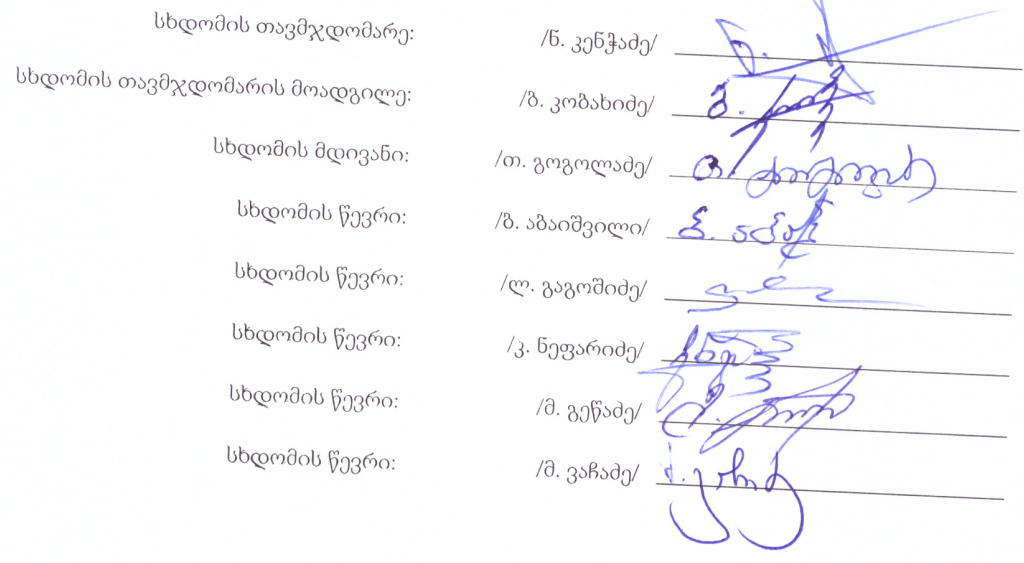 სხდომის თავმჯდომარე: /ნ. კენჭაძე/
სხდომის თავმჯდომარის მოადგილე: /ბ. კობახიძე/
სხდომის მდივანი: /თ. გოგოლაძე/
სხდომის წევრი: /ბ. აბაიშვილი/
სხდომის წევრი: /ლ. გაგოშიძე/
სხდომის წევრი: /კ. ნეფარიძე/
სხდომის წევრი: /მ. გეწაძე/
სხდომის წევრი: /მ. ვაჩაძე/